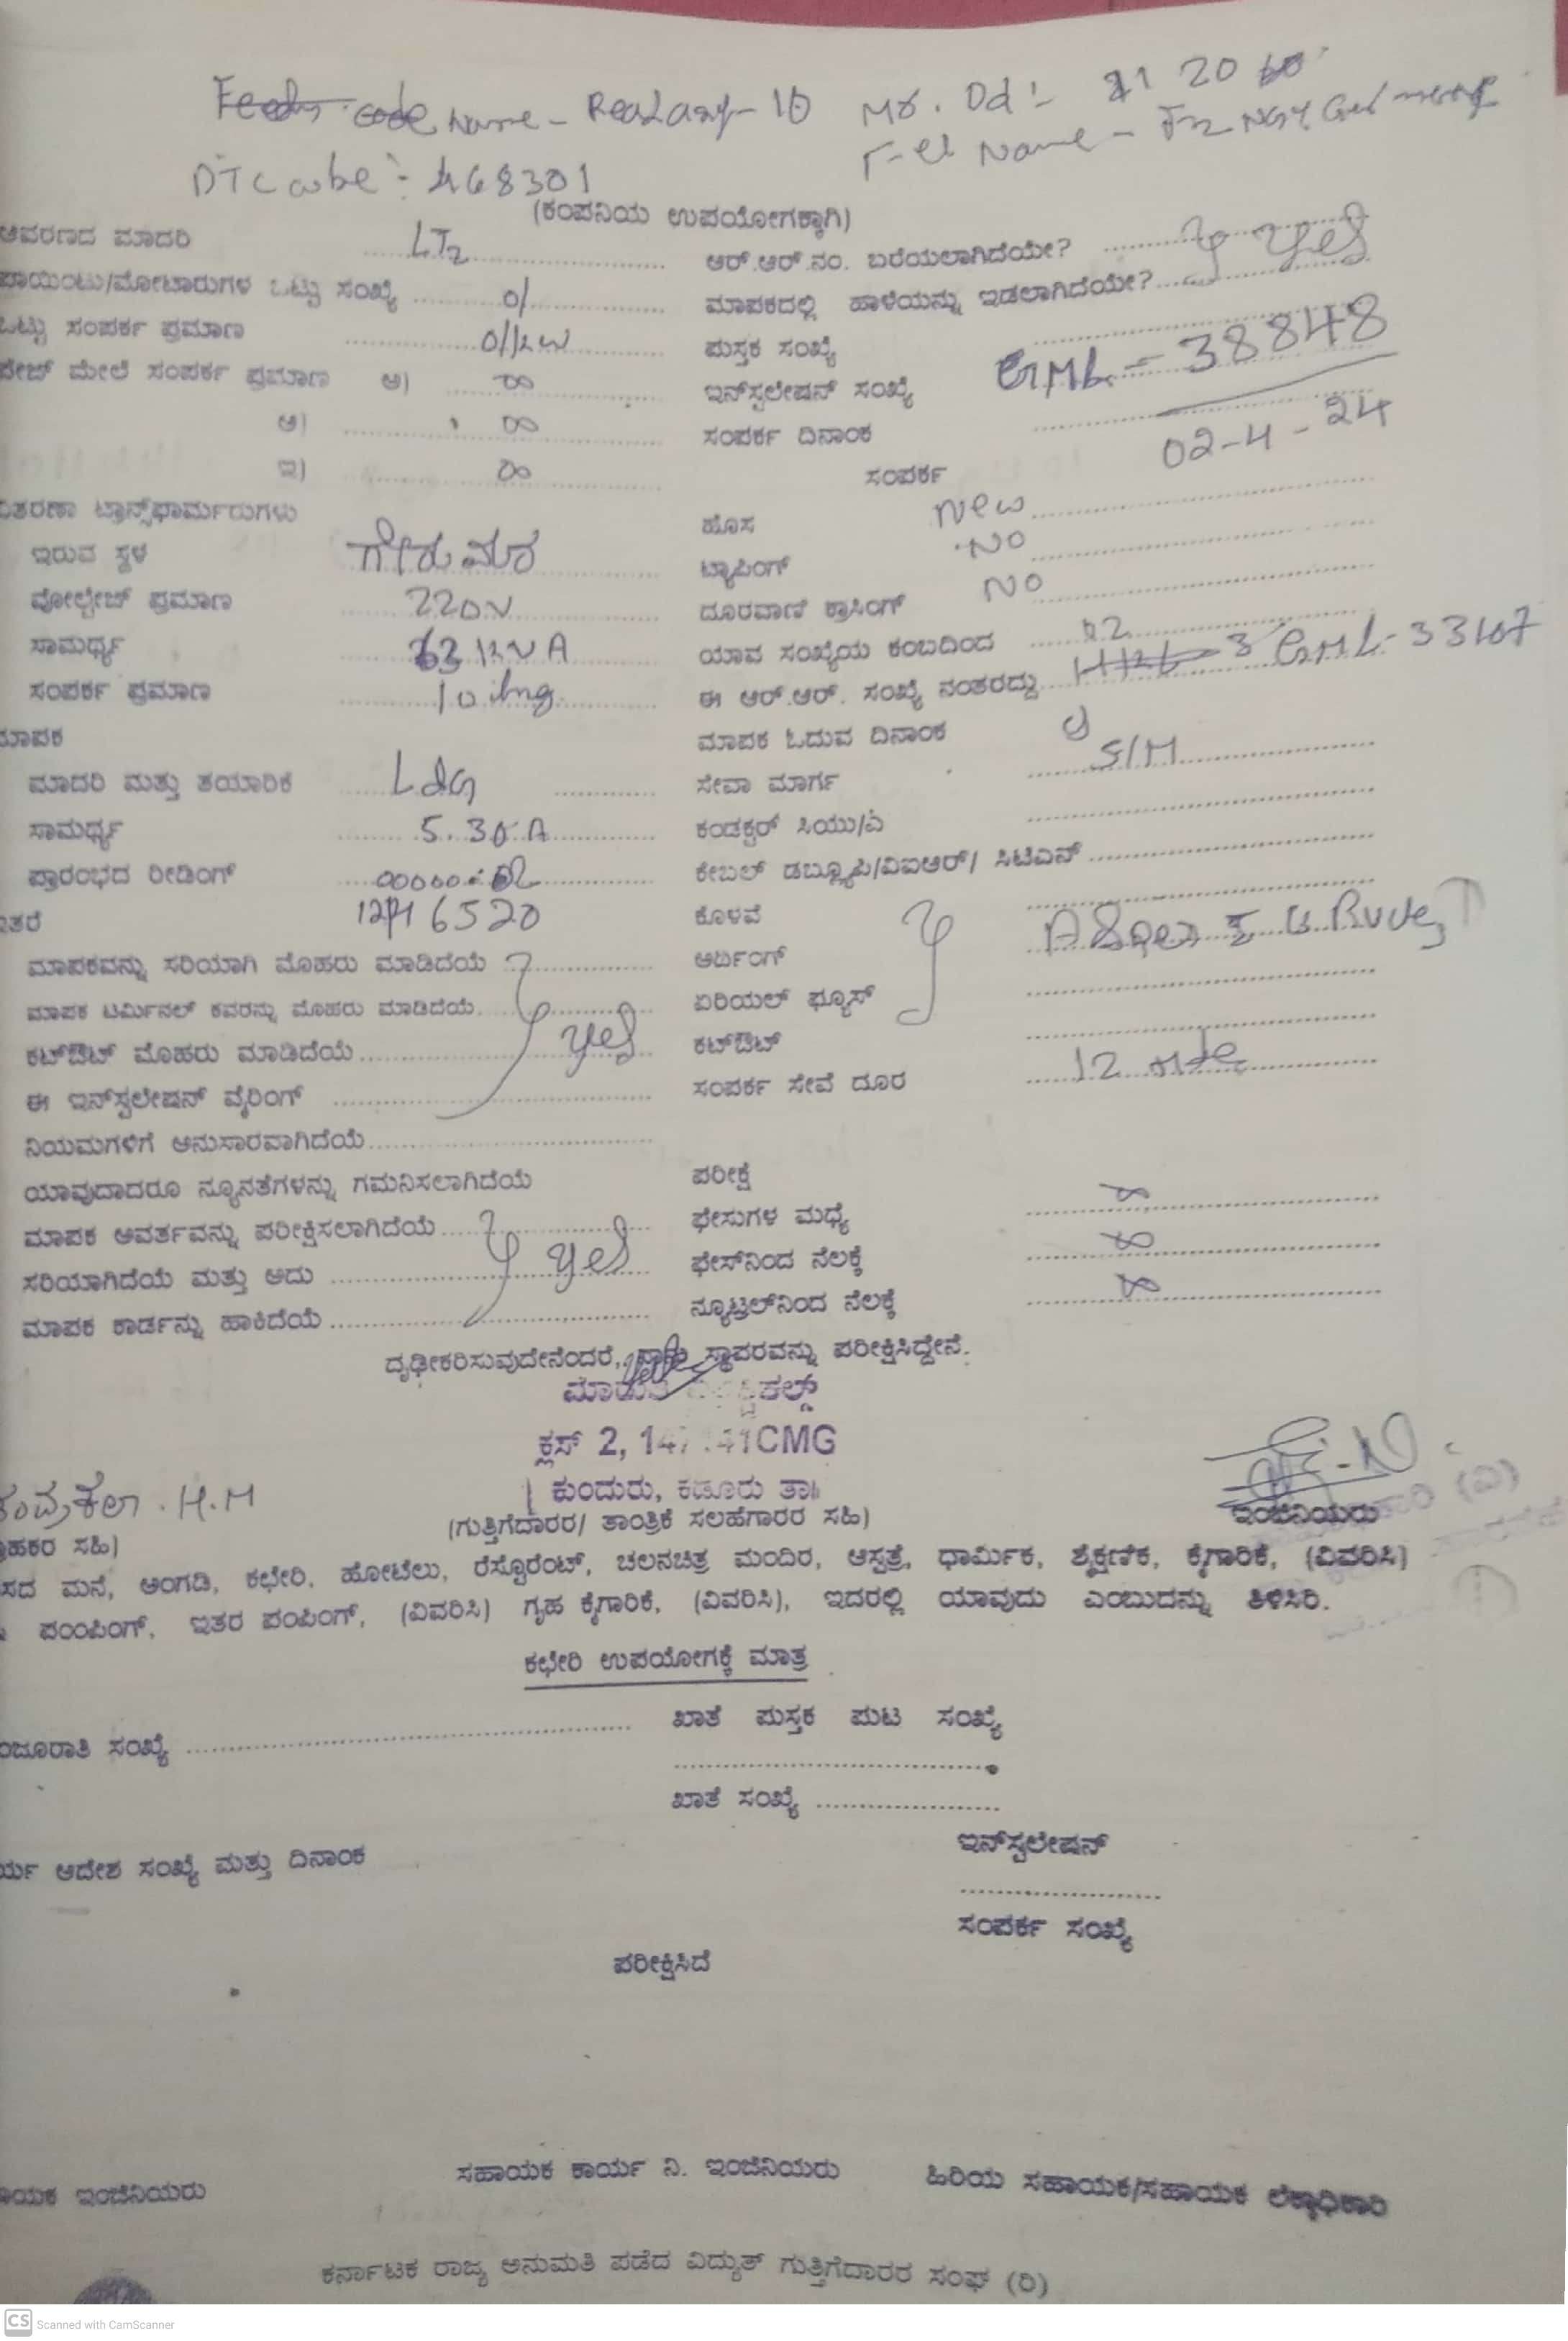 Name - 10 Mr. Od :- 21 20
DTC code :- 468301
(ಕಂಪನಿಯ ಉಪಯೋಗಕ್ಕಾಗಿ)
ಆವರಣದ ಮಾದರಿ LT2 ಆರ್.ಆರ್.ನಂ. ಬರೆಯಲಾಗಿದೆಯೇ? yes
ಪಾಯಿಂಟು/ಮೋಟಾರುಗಳ ಒಟ್ಟು ಸಂಖ್ಯೆ 01 ಮಾಪಕದಲ್ಲಿ ಹಾಳೆಯನ್ನು ಇಡಲಾಗಿದೆಯೇ?
ಒಟ್ಟು ಸಂಪರ್ಕ ಪ್ರಮಾಣ ಪುಸ್ತಕ ಸಂಖ್ಯೆ
ಮೇಲೆ ಸಂಪರ್ಕ ಪ್ರಮಾಣ ಅ) ಇನ್‌ಸ್ಟಲೇಷನ್ ಸಂಖ್ಯೆ GML - 38848
ಆ) ಸಂಪರ್ಕ ದಿನಾಂಕ 02-4-24
ಇ) ಸಂಪರ್ಕ
ಟ್ರಾನ್ಸ್‌ಫಾರ್ಮರುಗಳು ಹೊಸ New
ಇರುವ ಸ್ಥಳ ಗೇರುಮರ ಟ್ಯಾಪಿಂಗ್ NO
ವೋಲ್ಟೇಜ್ ಪ್ರಮಾಣ 220V ದೂರವಾಣಿ ಕ್ರಾಸಿಂಗ್ NO
ಸಾಮರ್ಥ್ಯ 63 KVA ಯಾವ ಸಂಖ್ಯೆಯ ಕಂಬದಿಂದ 02
ಸಂಪರ್ಕ ಪ್ರಮಾಣ ಈ ಆರ್.ಆರ್. ಸಂಖ್ಯೆ ನಂತರದ್ದು GML-33107
ಮಾಪಕ ಮಾಪಕ ಓದುವ ದಿನಾಂಕ
ಮಾದರಿ ಮತ್ತು ತಯಾರಿಕೆ L&G ಸೇವಾ ಮಾರ್ಗ S/M
ಸಾಮರ್ಥ್ಯ 5.30 A ಕಂಡಕ್ಟರ್ ಸಿಯು/ಎ
ಪ್ರಾರಂಭದ ರೀಡಿಂಗ್ ಕೇಬಲ್ ಡಬ್ಲ್ಯೂಪಿ/ವಿಐಆರ್/ ಸಿಟಿಎಸ್
ಇತರೆ 6520 ಕೊಳವೆ
ಮಾಪಕವನ್ನು ಸರಿಯಾಗಿ ಮೊಹರು ಮಾಡಿದೆಯೆ ಅರ್ಥಿಂಗ್
ಮಾಪಕ ಟರ್ಮಿನಲ್ ಕವರನ್ನು ಮೊಹರು ಮಾಡಿದೆಯೆ yes ಏರಿಯಲ್ ಫ್ಯೂಸ್
ಕಟ್‌ಔಟ್ ಮೊಹರು ಮಾಡಿದೆಯೆ ಕಟ್‌ಔಟ್
ಈ ಇನ್‌ಸ್ಟಲೇಷನ್ ವೈರಿಂಗ್ ಸಂಪರ್ಕ ಸೇವೆ ದೂರ 12
ನಿಯಮಗಳಿಗೆ ಅನುಸಾರವಾಗಿದೆಯೆ
ಯಾವುದಾದರೂ ನ್ಯೂನತೆಗಳನ್ನು ಗಮನಿಸಲಾಗಿದೆಯೆ ಪರೀಕ್ಷೆ
ಮಾಪಕ ಆವರ್ತವನ್ನು ಪರೀಕ್ಷಿಸಲಾಗಿದೆಯೆ ಫೇಸುಗಳ ಮಧ್ಯೆ
ಸರಿಯಾಗಿದೆಯೆ ಮತ್ತು ಅದು yes ಫೇಸ್‌ನಿಂದ ನೆಲಕ್ಕೆ
ಮಾಪಕ ಕಾರ್ಡನ್ನು ಹಾಕಿದೆಯೆ ನ್ಯೂಟ್ರಲ್‌ನಿಂದ ನೆಲಕ್ಕೆ
ದೃಢೀಕರಿಸುವುದೇನೆಂದರೆ, ನಾನು ಸ್ಥಾವರವನ್ನು ಪರೀಕ್ಷಿಸಿದ್ದೇನೆ.
ಕ್ಲಸ್ 2, CMG
ಕುಂದುರು, ಕಡೂರು ತಾ॥
H.M ಇಂಜಿನಿಯರು
(ಗುತ್ತಿಗೆದಾರರ/ ತಾಂತ್ರಿಕ ಸಲಹೆಗಾರರ ಸಹಿ)
ಸಹಿ)
ಮನೆ, ಅಂಗಡಿ, ಕಛೇರಿ, ಹೋಟೆಲು, ರೆಸ್ಟೊರೆಂಟ್, ಚಲನಚಿತ್ರ ಮಂದಿರ, ಆಸ್ಪತ್ರೆ, ಧಾರ್ಮಿಕ, ಶೈಕ್ಷಣಿಕ, ಕೈಗಾರಿಕೆ, (ವಿವರಿಸಿ)
ಪಂಪಿಂಗ್, ಇತರ ಪಂಪಿಂಗ್, (ವಿವರಿಸಿ) ಗೃಹ ಕೈಗಾರಿಕೆ, (ವಿವರಿಸಿ), ಇದರಲ್ಲಿ ಯಾವುದು ಎಂಬುದನ್ನು ತಿಳಿಸಿರಿ.
ಕಛೇರಿ ಉಪಯೋಗಕ್ಕೆ ಮಾತ್ರ
ಸಂಖ್ಯೆ ಖಾತೆ ಪುಸ್ತಕ ಪುಟ ಸಂಖ್ಯೆ
ಖಾತೆ ಸಂಖ್ಯೆ
ಆದೇಶ ಸಂಖ್ಯೆ ಮತ್ತು ದಿನಾಂಕ ಇನ್‌ಸ್ಟಲೇಷನ್
ಸಂಪರ್ಕ ಸಂಖ್ಯೆ
ಪರೀಕ್ಷಿಸಿದೆ
ಇಂಜಿನಿಯರು ಸಹಾಯಕ ಕಾರ್ಯ ನಿ. ಇಂಜಿನಿಯರು ಹಿರಿಯ ಸಹಾಯಕ/ಸಹಾಯಕ ಲೆಕ್ಕಾಧಿಕಾರಿ
ಕರ್ನಾಟಕ ರಾಜ್ಯ ಅನುಮತಿ ಪಡೆದ ವಿದ್ಯುತ್ ಗುತ್ತಿಗೆದಾರರ ಸಂಘ (ರಿ)
CS Scanned with CamScanner